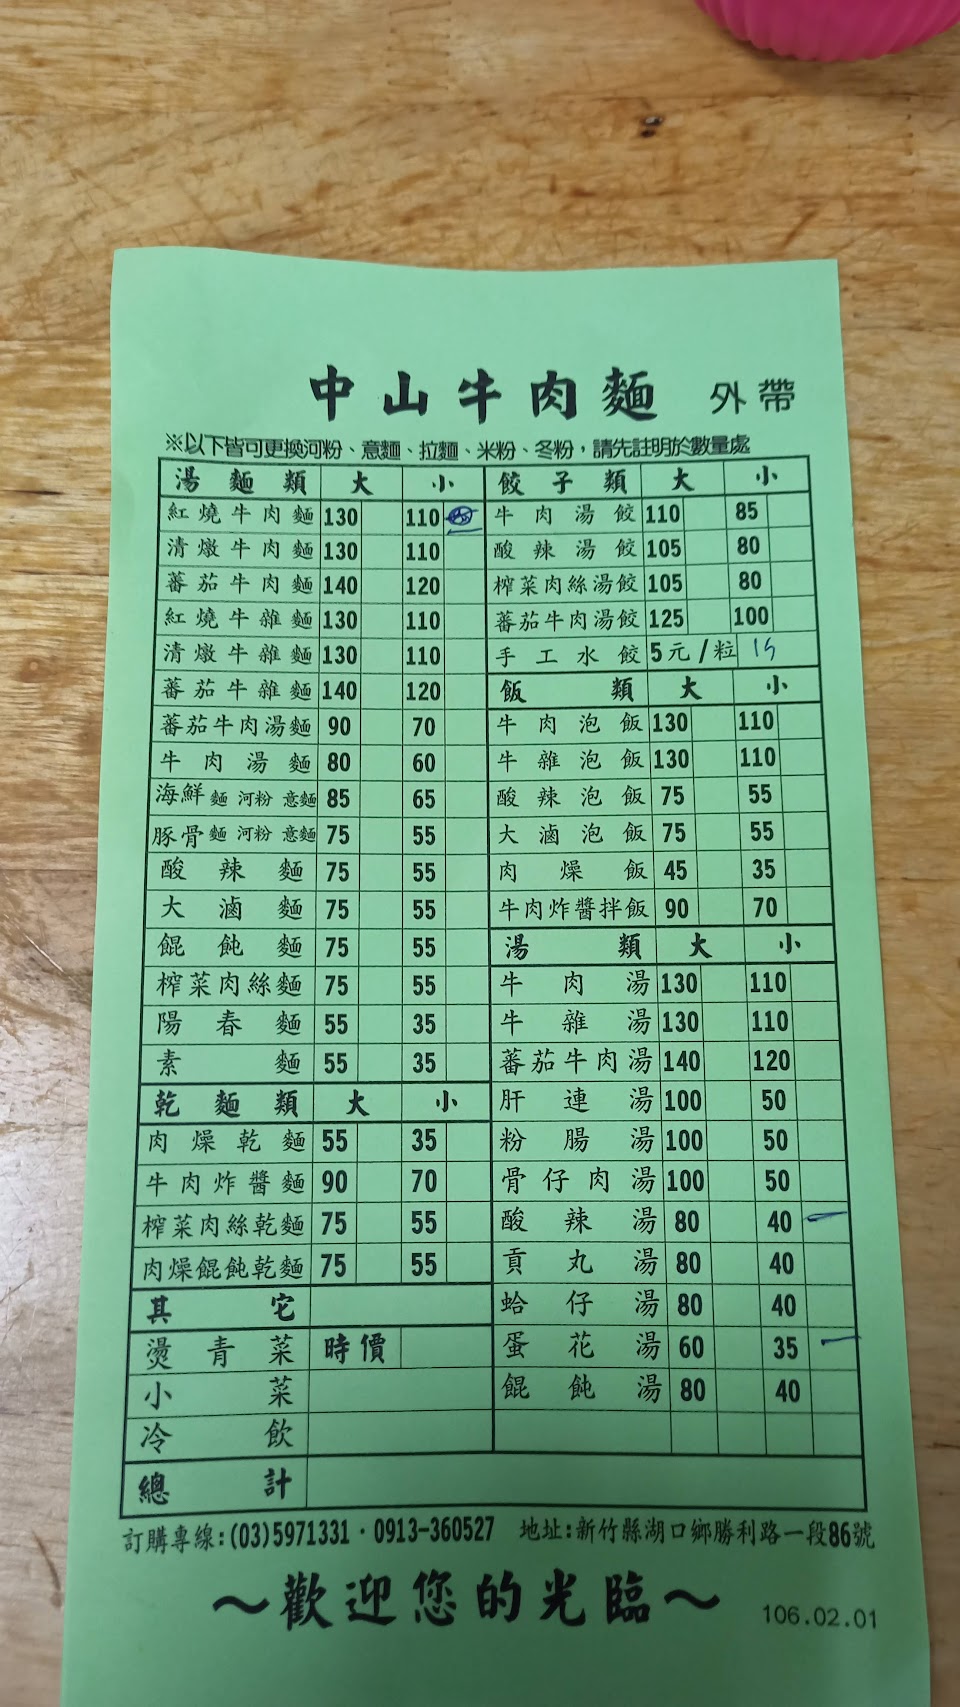 中山牛肉麵 外帶
※以下皆可更換河粉、意麵、拉麵、米粉、冬粉，請先註明於數量處
湯麵類 大 小
紅燒牛肉麵 130 110
清燉牛肉麵 130 110
蕃茄牛肉麵 140 120
紅燒牛雜麵 130 110
清燉牛雜麵 130 110
蕃茄牛雜麵 140 120
蕃茄牛肉湯麵 90 70
牛肉湯麵 80 60
海鮮 麵 河粉 意麵 85 65
豚骨 麵 河粉 意麵 75 55
酸辣麵 75 55
大滷麵 75 55
餛飩麵 75 55
榨菜肉絲麵 75 55
陽春麵 55 35
素麵 55 35
乾麵類 大 小
肉燥乾麵 55 35
牛肉炸醬麵 90 70
榨菜肉絲乾麵 75 55
肉燥餛飩乾麵 75 55
其它
燙青菜 時價
小菜
冷飲
餃子類 大 小
牛肉湯餃 110 85
酸辣湯餃 105 80
榨菜肉絲湯餃 105 80
蕃茄牛肉湯餃 125 100
手工水餃 5元/粒 15
飯類 大 小
牛肉泡飯 130 110
牛雜泡飯 130 110
酸辣泡飯 75 55
大滷泡飯 75 55
肉燥飯 45 35
牛肉炸醬拌飯 90 70
湯類 大 小
牛肉湯 130 110
牛雜湯 130 110
蕃茄牛肉湯 140 120
肝連湯 100 50
粉腸湯 100 50
骨仔肉湯 100 50
酸辣湯 80 40
貢丸湯 80 40
蛤仔湯 80 40
蛋花湯 60 35
餛飩湯 80 40
總計
訂購專線:(03)5971331·0913-360527 地址:新竹縣湖口鄉勝利路一段86號
～歡迎您的光臨～ 106.02.01